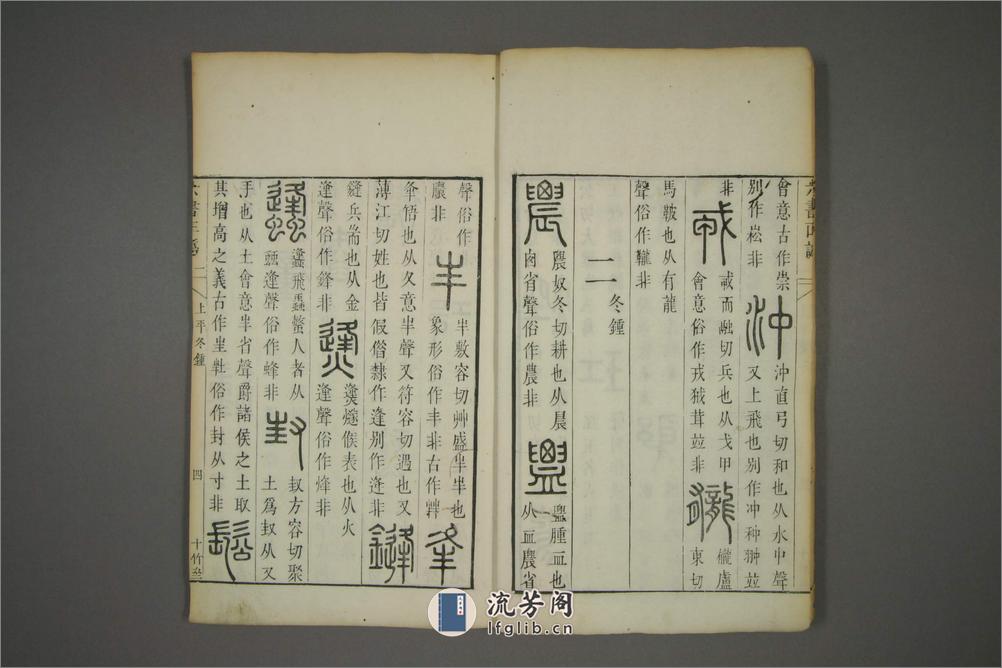 會意古作崇
別作崧非
沖
沖直弓切和也从水中聲
又上飛也別作冲种翀竝
非
㦴而融切兵也从戈甲
會意俗作戎狨茸竝非
䡁盧
東切
馬鞁也从有龍
聲俗作韄非
二冬鍾
農奴冬切耕也从晨
囪省聲俗作農非
盥腫血也
从血農省
聲俗作
膿非
丰
半敷容切艸盛半半也
象形俗作丰非古作
夆
夆啎也从夂意半聲又符容切遇也又
薄江切姓也皆假借隸作逢別作逄非
鏠
縫兵耑也从金
逢聲俗作鋒非
㷭燧候表也从火
逢聲俗作烽非
蠭飛蟲螫人者从
䖵逢聲俗作蜂非
封
㞷方容切聚
土爲封从又
手也从土會意半省聲爵諸侯之土取
其增高之義古作㞷𡉚俗作封从寸非
鬆
六書正譌
上平冬鍾
四
十竹
流芳阁
lfglib.cn